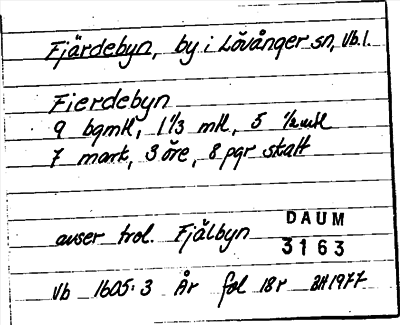 Fjärdebyn, by i Lövånger sn, Vb.l.
Fierdebyn
9 bgmtl, 1 1/3 mtl, 5 1/2 mtl
7 mark, 3 öre, 8 pgr skatt
DAUM
avser trol. Fjälbyn
3163
Vb 1605:3 År fol 18r BH 1977